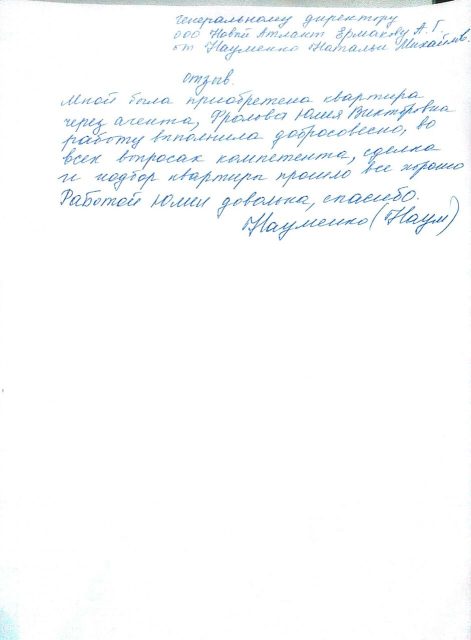 Генеральному директору
ООО Новый Атлант Ермакову А.Г.
от Науменко Натальи Михайлов.
Отзыв.
Мной была приобретена квартира
через агента, Фролова Юлия Викторовна
работу выполнила добросовесно, во
всех вопросах компетента, сделка
и подбор квартиры прошло все хорошо
Работой Юлии довольна, спасибо.
Науменко (Наум)